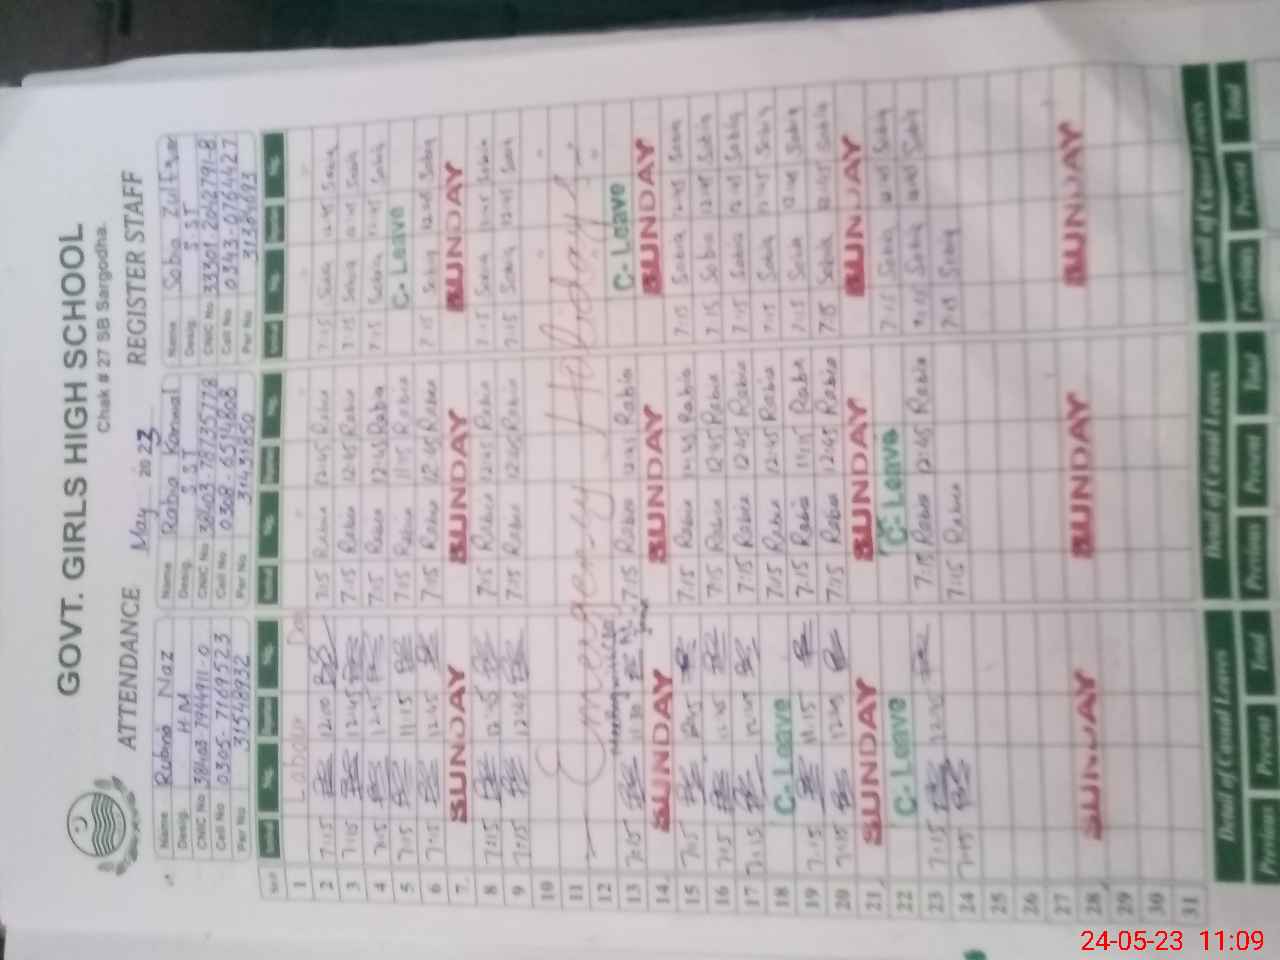 GOVT. GIRLS HIGH SCHOOL
Chak # 27 SB Sargodha.
ATTENDANCE May 2023 REGISTER STAFF
Name Rubina Naz Name Rabia Kanwal Name Sobia Zulfiqar
Desig. H M Desig. S S T Desig. S S T
CNIC No 38403-7944911-0 CNIC No 38403-7873577-8 CNIC No 33301 2042791-8
Cell No 0305-7169523 Cell No 0308-6514808 Cell No 0343-0764427
Per No 31548932 Per No 31431850 Per No
1 Labour Day
2 7:15 12:00 7:15 Rabia 12:45 Rabia 7:15 Sobia 12:45 Sobia
3 7:15 12:45 7:15 Rabia 12:45 Rabia 7:15 Sobia 12:45 Sobia
4 7:15 12:45 7:15 Rabia 12:45 Rabia 7:15 Sobia 12:45 Sobia
5 7:15 11:15 7:15 Rabia 11:15 Rabia C- Leave
6 7:15 12:45 7:15 Rabia 12:45 Rabia 7:15 Sobia 12:45 Sobia
7 SUNDAY SUNDAY SUNDAY
8 7:15 12:45 7:15 Rabia 12:45 Rabia 7:15 Sobia 12:45 Sobia
9 7:15 12:45 7:15 Rabia 12:45 Rabia 7:15 Sobia 12:45 Sobia
10
11 Emergency Holidays
12
13 7:15 11:30 7:15 Rabia 12:45 Rabia C- Leave
14 SUNDAY SUNDAY SUNDAY
15 7:15 12:45 7:15 Rabia 12:45 Rabia 7:15 Sobia 12:45 Sobia
16 7:15 12:45 7:15 Rabia 12:45 Rabia 7:15 Sobia 12:45 Sobia
17 7:15 12:45 7:15 Rabia 12:45 Rabia 7:15 Sobia 12:45 Sobia
18 C- Leave 7:15 Rabia 12:45 Rabia 7:15 Sobia 12:45 Sobia
19 7:15 11:15 7:15 Rabia 11:15 Rabia 7:15 Sobia 12:45 Sobia
20 7:15 12:45 7:15 Rabia 12:45 Rabia 7:15 Sobia 12:45 Sobia
21 SUNDAY SUNDAY SUNDAY
22 C- Leave C- Leave 7:15 Sobia 12:45 Sobia
23 7:15 12:45 7:15 Rabia 12:45 Rabia 7:15 Sobia 12:45 Sobia
24 7:15 7:15 Rabia 7:15 Sobia
25
26
27
28 SUNDAY SUNDAY SUNDAY
29
30
31
Detail of Casual Leaves Detail of Casual Leaves Detail of Casual Leaves
Previous Present Total Previous Present Total Previous Present Total
24-05-23 11:09